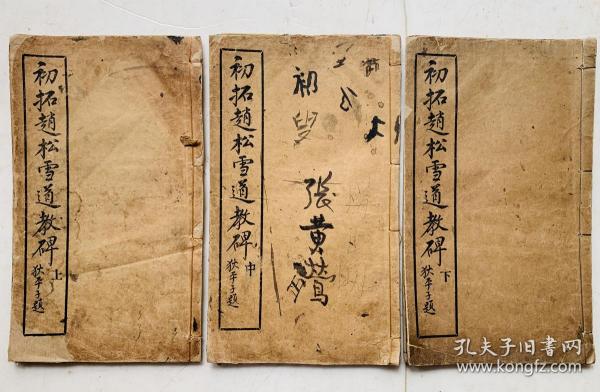 初拓趙松雪道教碑 上
狄平子題
初拓趙松雪道教碑 中
狄平子題
張黄鶯
初拓趙松雪道教碑 下
狄平子題
孔夫子旧書网
www.kongfz.com